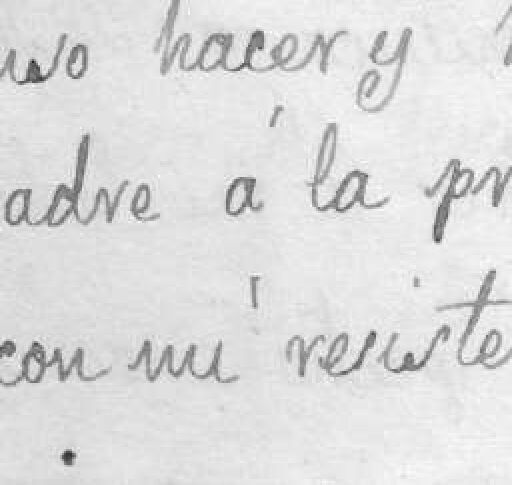 uso hacer y
adre á la pr
con mi resiste